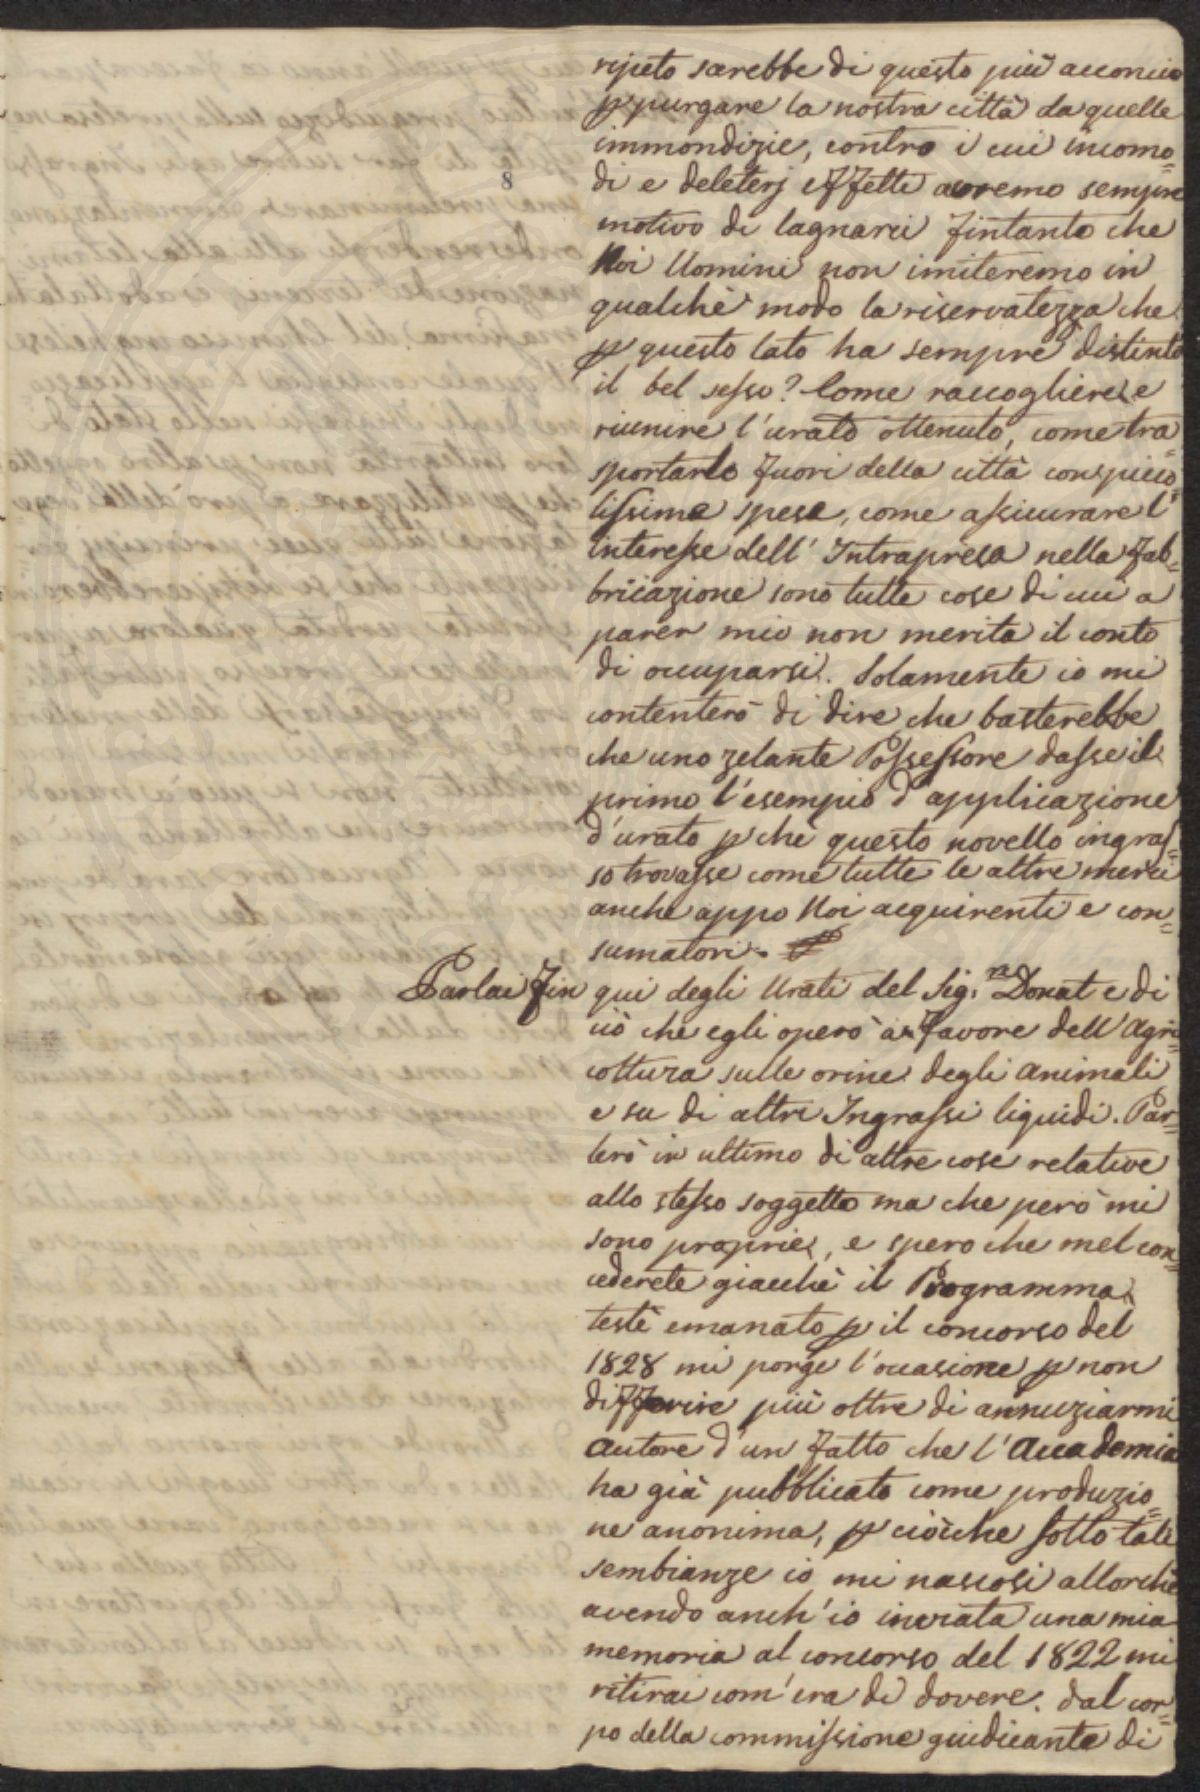 8
ripeto sarebbe di questo più acconcio
p purgare la nostra città da quelle
immondizie, contro i cui incomo=
di e deleterj effetti avremo sempre
motivo di lagnarci fintanto che
Noi Uomini non imiteremo in
qualchè modo la riservatezza che
p questo lato ha sempre distinto
il bel sesso? Come raccogliere e
riunire l'urato ottenuto, come tra=
sportarlo fuori della città con picco=
lissima spesa, come assicurare l'
interesse dell'Intrapresa nella fab=
bricazione sono tutte cose di cui a
parer mio non merita il conto
di occuparsi. Solamente io mi
contenterò di dire che basterebbe
che uno zelante Possessore dasse il
primo l'esempio d'applicazione
d'urato p chè questo novello ingras=
so trovasse come tutte le altre merci
anche appo Noi acquirenti e con=
sumatori.
Parlai fin qui degli Urati del Sig.ra Donat e di
ciò che egli operò a favore dell'Agri=
coltura sulle orine degli animali
e su di altri Ingrassi liquidi. Par=
lerò in ultimo di altre cose relative
allo stesso soggetto ma che però mi
sono proprie, e spero che mel con=
cederete giacchè il Programma
testè emanato p il concorso del
1828 mi porge l'occasione p non
differire più oltre di annuziarmi
autore d'un fatto che l'Accademia
ha già pubblicato come produzio=
ne anonima, p ciocche sotto tali
sembianze io mi nascosi allorchè
avendo anch'io inviata una mia
memoria al concorso del 1822 mi
ritirai com'era di dovere. dal cor=
po della commissione giudicante di